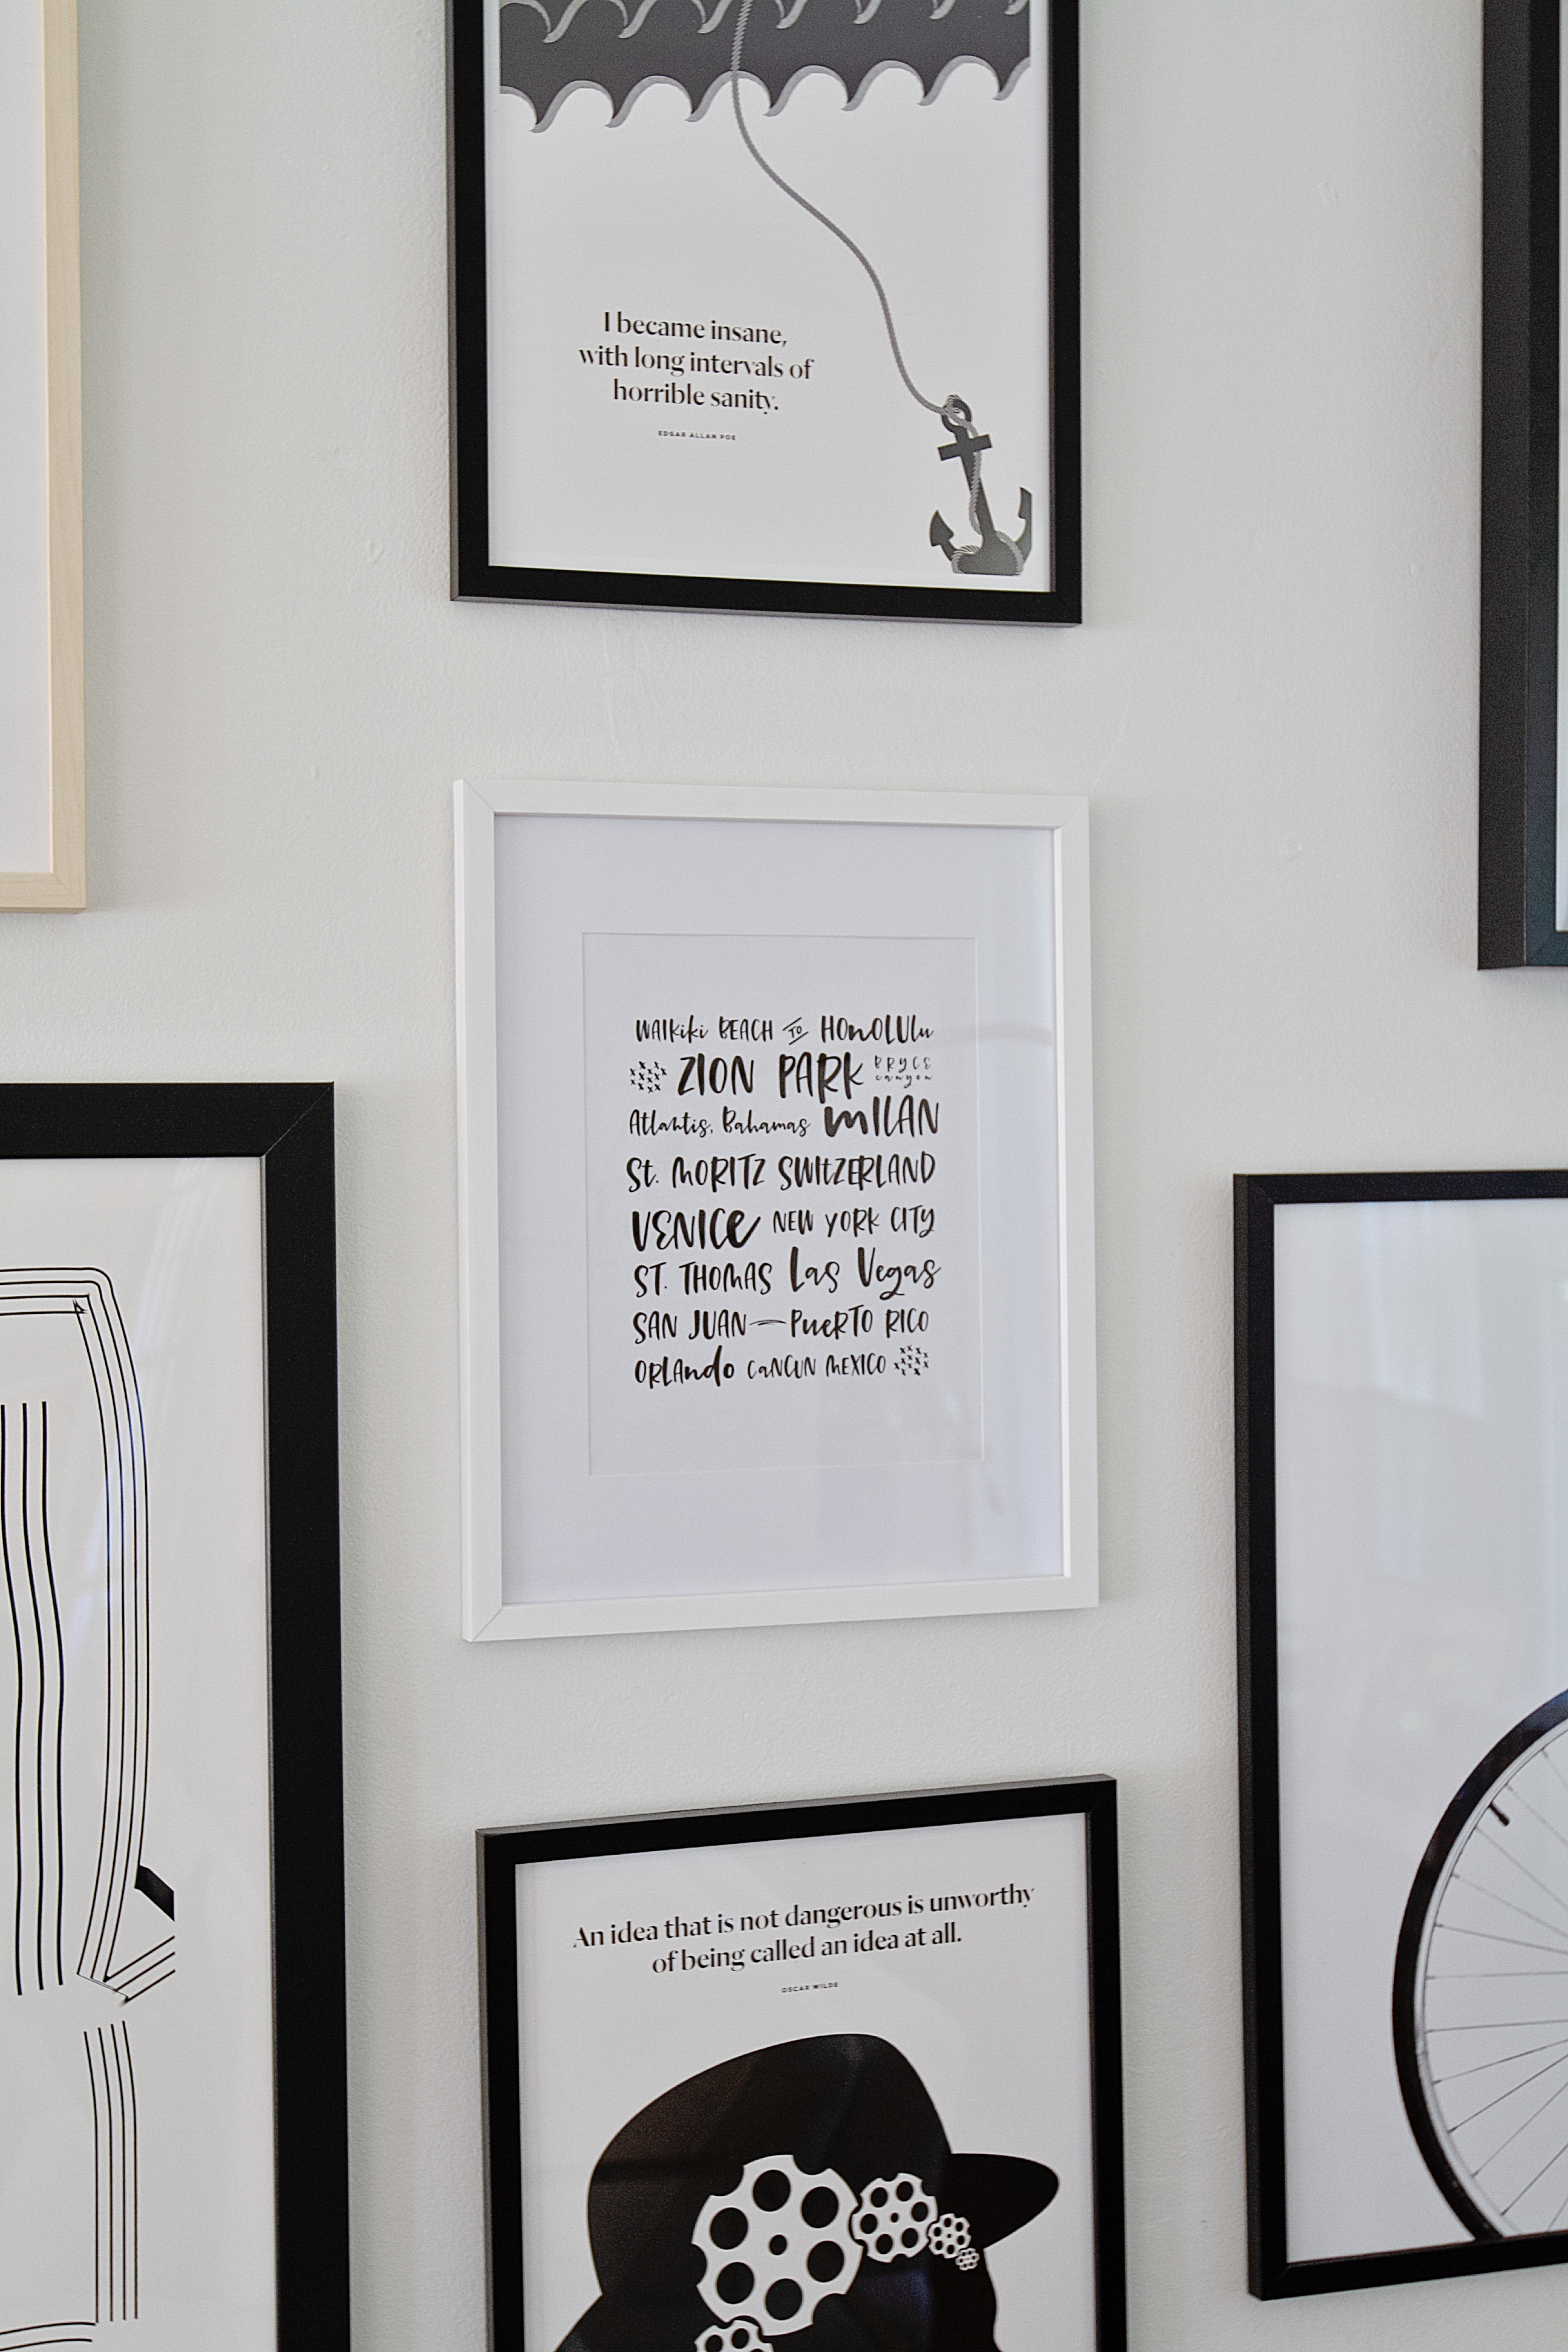 I became insane,
with long intervals of
horrible sanity.
EDGAR ALLAN POE
WAIKiki BEACH TO HOnOLULu
ZION PARK BRYCE
canyon
Atlantis, Bahamas mILAN
St. MORITZ SWItZERLAND
VENICe NEW YORK CITY
ST. THOMAS Las Vegas
SAN JUAN—PueRTO RICO
ORLAndo CaNCUN MEXICO
An idea that is not dangerous is unworthy
of being called an idea at all.
OSCAR WILDE